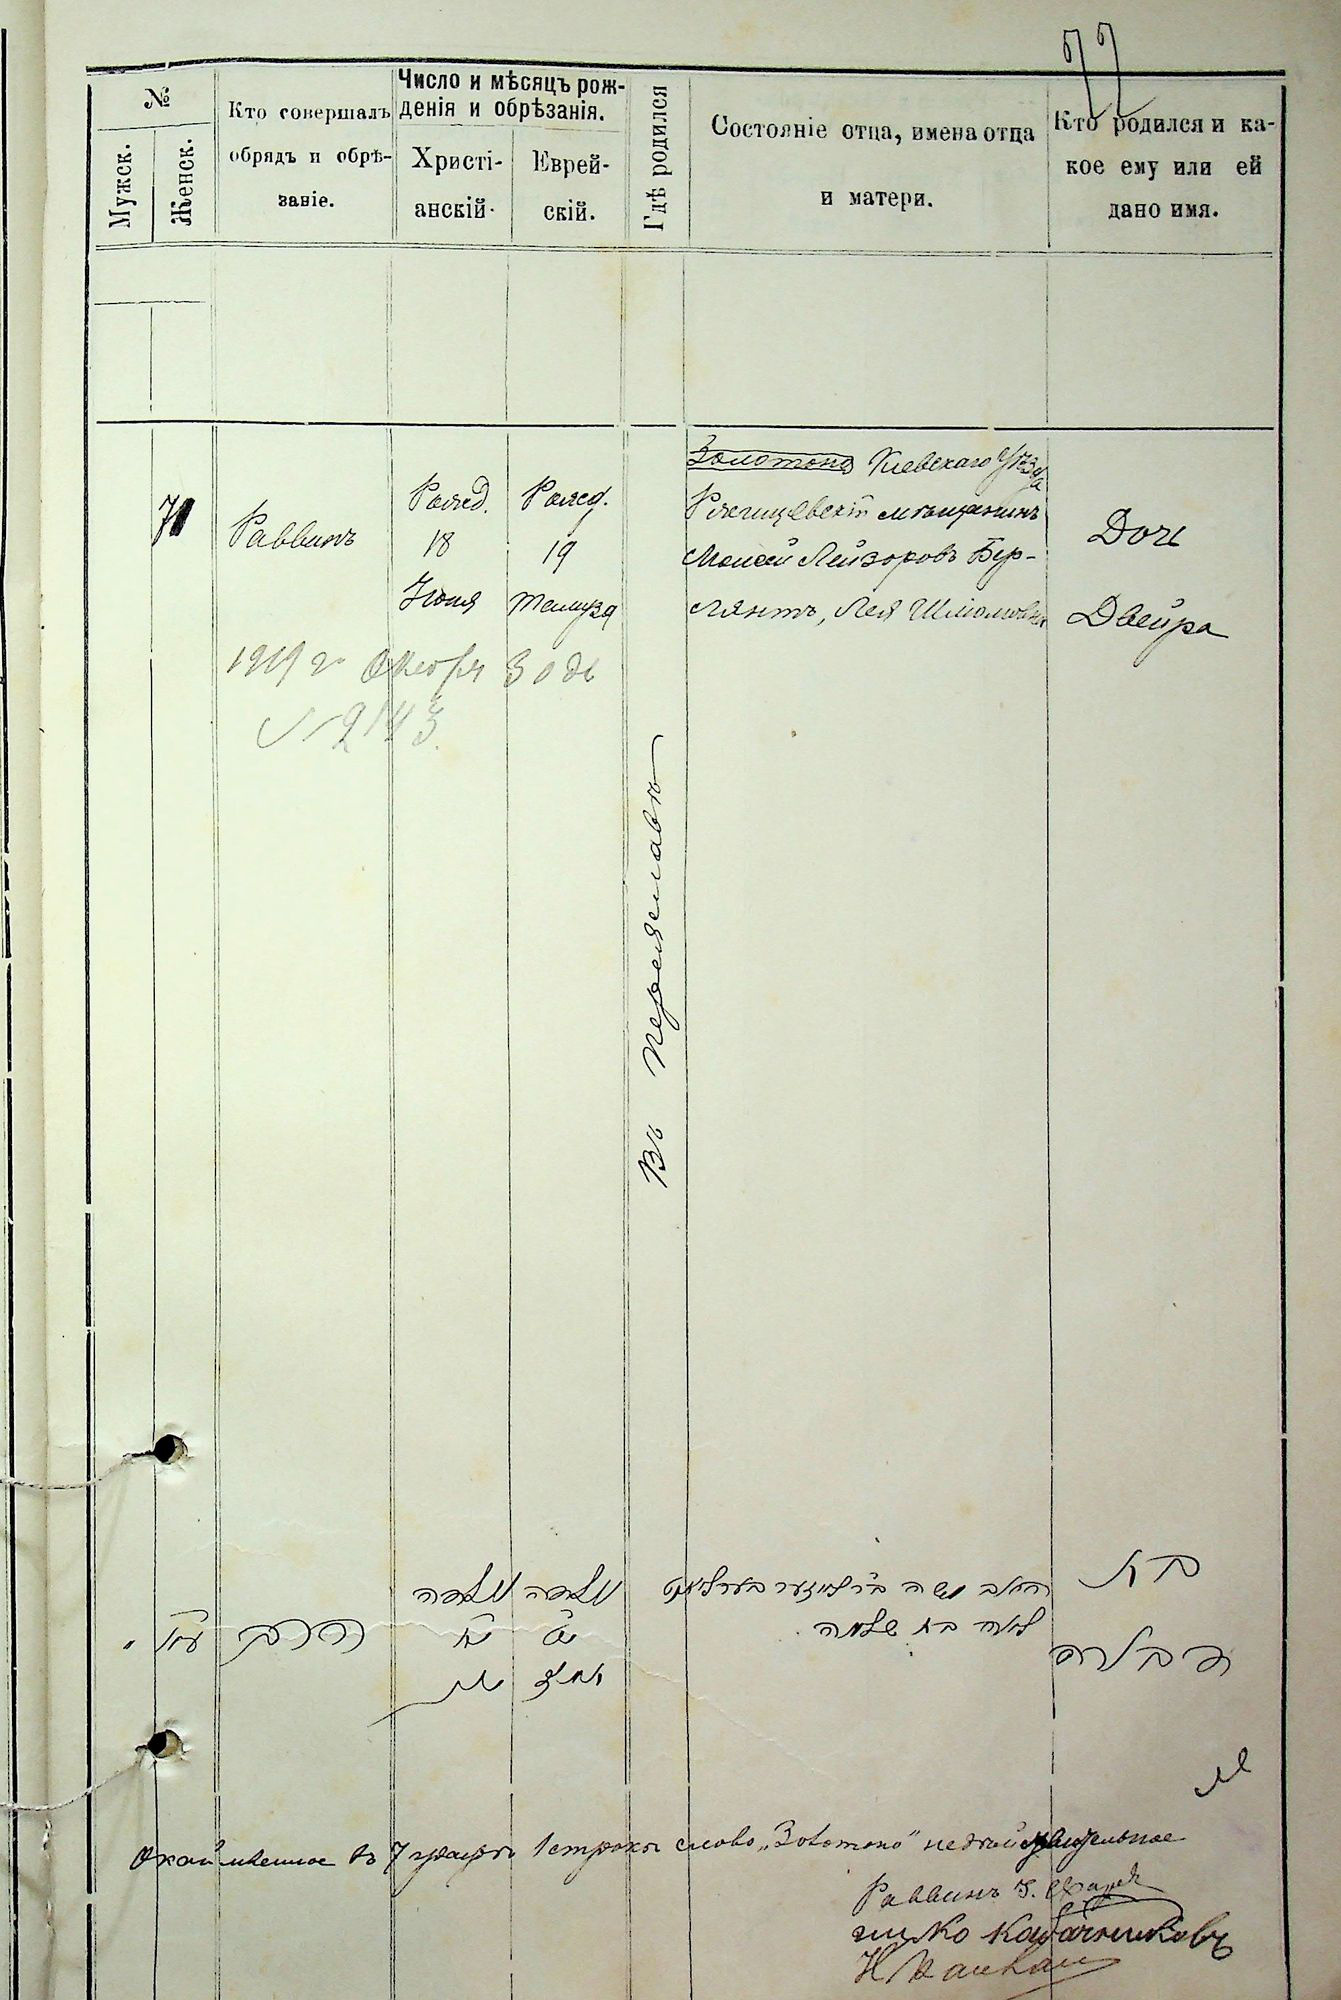 77
№
Мужск.
Женск.
Кто совершалъ
обрядъ и обрѣ-
заніе.
Число и мѣсяцъ рож-
денія и обрѣзанія.
Христі-
анскій.
Еврей-
скій.
Гдѣ родился
Состояніе отца, имена отца
и матери.
Кто родился и ка-
кое ему или ей
дано имя.
71
Раввинъ
Рожд.
18
Іюня
Рожд.
19
Тамуза
Въ Переяславѣ
Золотоно Кіевскаго Уѣзда
Ржищевскій мѣщанинъ
Моисей Лейзоровъ Бер-
лянтъ, Лея Шліомовна
Дочь
Двейра
1919 г Октября 30 дь
№ 2143
הרב
בת
לאה בת שלמה
Окаймленное въ 7 графѣ 1 строки слово „Золотоно" недѣйствительное
Раввинъ